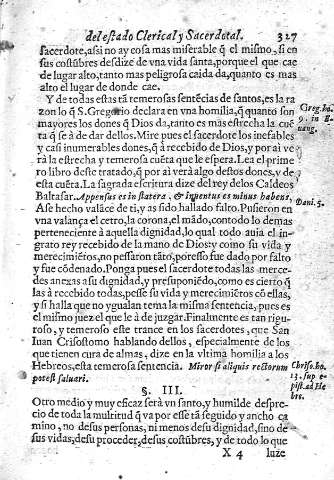 del estado Clerical y Sacerdotal. 327
sacerdote, assi no ay cosa mas miserable q̃ el mismo, si en
sus costũbres desdize de vna vida santa, porque el que cae
de lugar alto, tanto mas peligrosa caida da, quanto es mas
alto el lugar de donde cae.
Y de todas estas tã temerosas sentẽcias de santos, es la ra
zon lo q̃ S. Gregorio declara en vna homilia, q̃ quanto son
mayores los dones q̃ Dios da, tanto es mas estrecha la cuẽ
ta q̃ se à de dar dellos. Mire pues el sacerdote los inefables
y casi inumerables dones, q̃ à recebido de Dios, y por ai ve
rà la estrecha y temerosa cuẽta que le espera. Lea el prime
ro libro deste tratado, q̃ por ai verà algo destos dones, y de
esta cuẽta. La sagrada escritura dize del rey delos Caldeos
Baltasar. Appensus es in statera, & inuentus es minus habens,
Ase hecho valãce de ti, y as sido hallado falto. Pusieron en
vna valança el cetro, la corona, el mãdo, con todo lo demas
perteneciente à aquella dignidad, lo qual todo auia el ingra
to rey recebido de la mano de Dios; y como su vida y
merecimiẽtos, no pessaron tãto, por esso fue dado por falto
y fue cõdenado. Ponga pues el sacerdote todas las merce-
des anexas a su dignidad, y presuponiẽdo, como es cierto q̃
las à recebido todas, pesse su vida y merecimiẽtos cõ ellas,
y si halla que no ygualan tema la misma sentencia, pues es
el mismo juez el que le à de juzgar. Finalmente es tan rigu-
roso, y temeroso este trance en los sacerdotes, que San
Iuan Crisostomo hablando dellos, especialmente de los
que tienen cura de almas, dize en la vltima homilia a los
Hebreos, esta temerosa sentencia. Miror si aliquis rectorum
potest saluari.
Greg. ho.
9. in E-
uang.
Dani. 5.
Chriso. ho.
13. sup e-
pist. ad He
bre.
§. III.
Otro medio y muy eficaz serà vn santo, y humilde despre-
cio de toda la multitud q̃ va por esse tã seguido y ancho ca
mino, no desus personas, ni menos desu dignidad, sino de
sus vidas, desu proceder, desus costũbres, y de todo lo que
X 4 luze